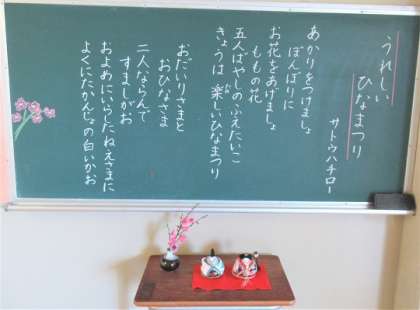 うれしい
ひなまつり
サトウハチロー
あかりをつけましょ
ぼんぼりに
お花をあげましょ
ももの花
五人ばやしのふえたいこ
きょうは 楽しいひなまつり
おだいりさまと
おひなさま
二人ならんで
すましがお
およめにいらしたねえさまに
よくにたかんじょの白いかお